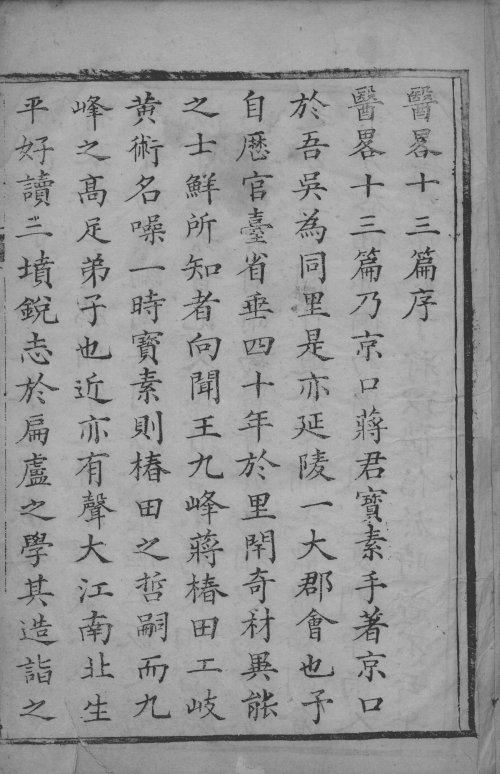 醫畧十三篇序
醫畧十三篇乃京口蔣君寳素手著京口
於吾吳為同里是亦延陵一大郡會也予
自厯官臺省垂四十年於里閈奇材異能
之士鮮所知者向聞王九峰蔣椿田工岐
黄術名噪一時寳素則椿田之哲嗣而九
峰之髙足弟子也近亦有聲大江南北生
平好讀三墳銳志於扁盧之學其造詣之